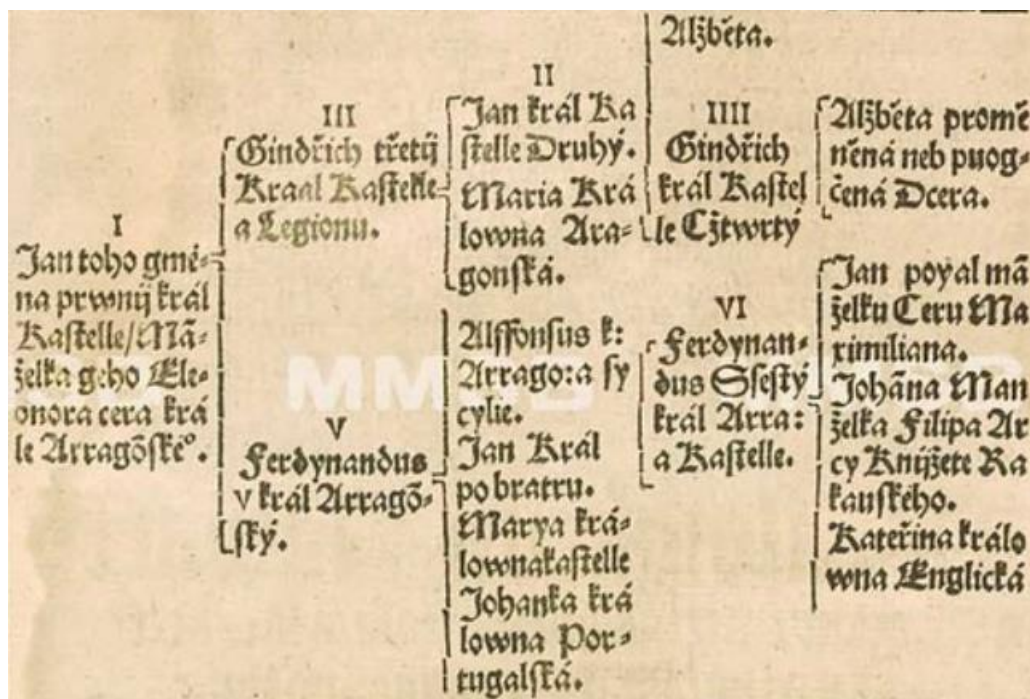 I
Jan toho gmé⸗
na prwnij král
Kastelle/Mā⸗
želka geho Ele⸗
onora cera krá
le Arragōskéº.
III
Gindřich třetij
Kraal Kastelle
a Legionu.
V
Ferdynandus
v král Arragō⸗
ský.
II
Jan král Ka
stelle Druhý.
Maria Krá
lowna Ara⸗
gonská.
Alffonsus k:
Arrago: a sy
cylie.
Jan Král
po bratru.
Marya krá⸗
lowna kastelle
Johanka krá
lowna Por⸗
tugalská.
Alžběta.
IIII
Gindřich
král Kastel
le Cžtwrtý
VI
Ferdynan⸗
dus Ssestý
král Arra:
a Kastelle.
Alžběta promě
něná neb puog⸗
čená Dcera.
Jan poyal mā
želku Ceru Ma
ximiliana.
Johāna Man
želka Filipa Ar
cy Knijžete Ra
kauského.
Kateřina králo
wna Englická